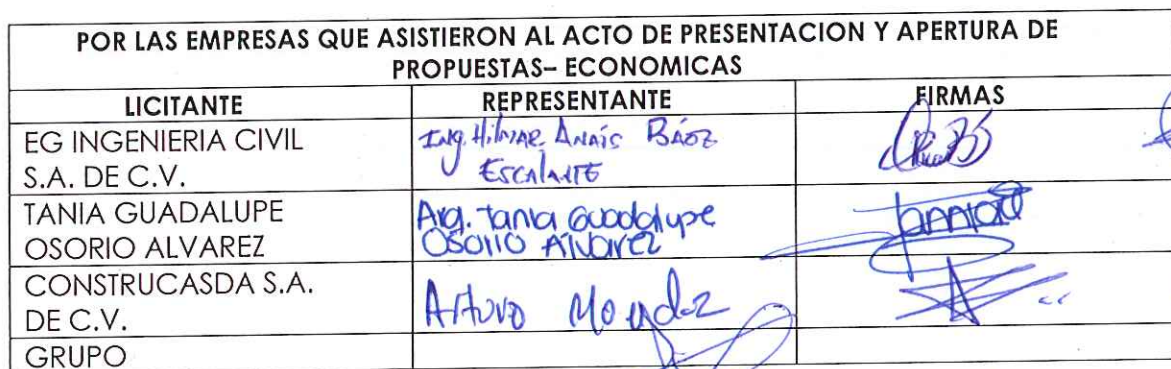 POR LAS EMPRESAS QUE ASISTIERON AL ACTO DE PRESENTACION Y APERTURA DE
PROPUESTAS– ECONOMICAS
LICITANTE REPRESENTANTE FIRMAS
EG INGENIERIA CIVIL
S.A. DE C.V.
Ing. Hilmar Anaís Báez
Escalante
TANIA GUADALUPE
OSORIO ALVAREZ
Arq. Tania Guadalupe
Osorio Alvarez
CONSTRUCASDA S.A.
DE C.V.
Arturo Mendez
GRUPO